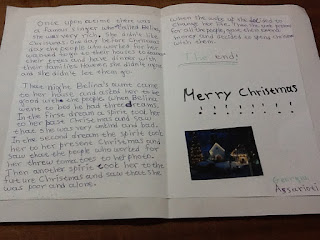 Once upon a time there was
a famous singer who called Belina
She was very rich. She didn't like
Christmas. One day before Christmas
day the people who worked for her
wanted to go to their houses to
their trees and have dinner with
their families. However she didn't agree
and she didn't let them go.
That night Belina's aunt came
to her house and asked her to be
good with the people. When Belina
went to bed he had three dreams.
In the first dream a spirit took her
to her past Christmas and saw
that she was very unkind and bad.
In the second dream the spirit took
her to her present Christmas and
saw that the people who worked for
her threw tomatoes to her photo.
Then another spirit took her to the
future Christmas and saw that she
was poor and alone.
When she woke up she decided to
change her life. Then she was
for all the people, gave them some
money and decided to spend Christmas
with them.
The end!
Merry Christmas
!!!!!!!!